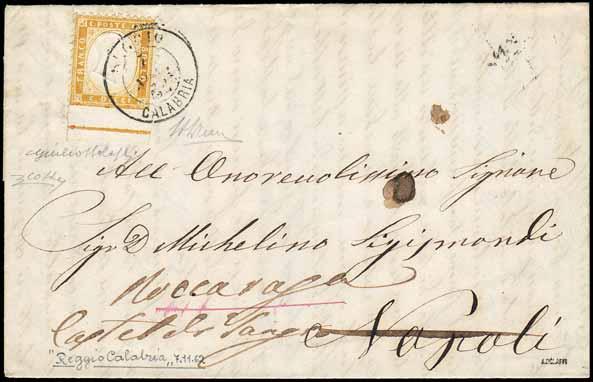 FRANCO
C. POSTE
C. DIECI
REGGIO
CALABRIA
All Onorevolissimo Signore
Sigr. D. Michelino Sigismondi
Roccaraga
Castel di Sangro Napoli
"Reggio Calabria" 7.11.62